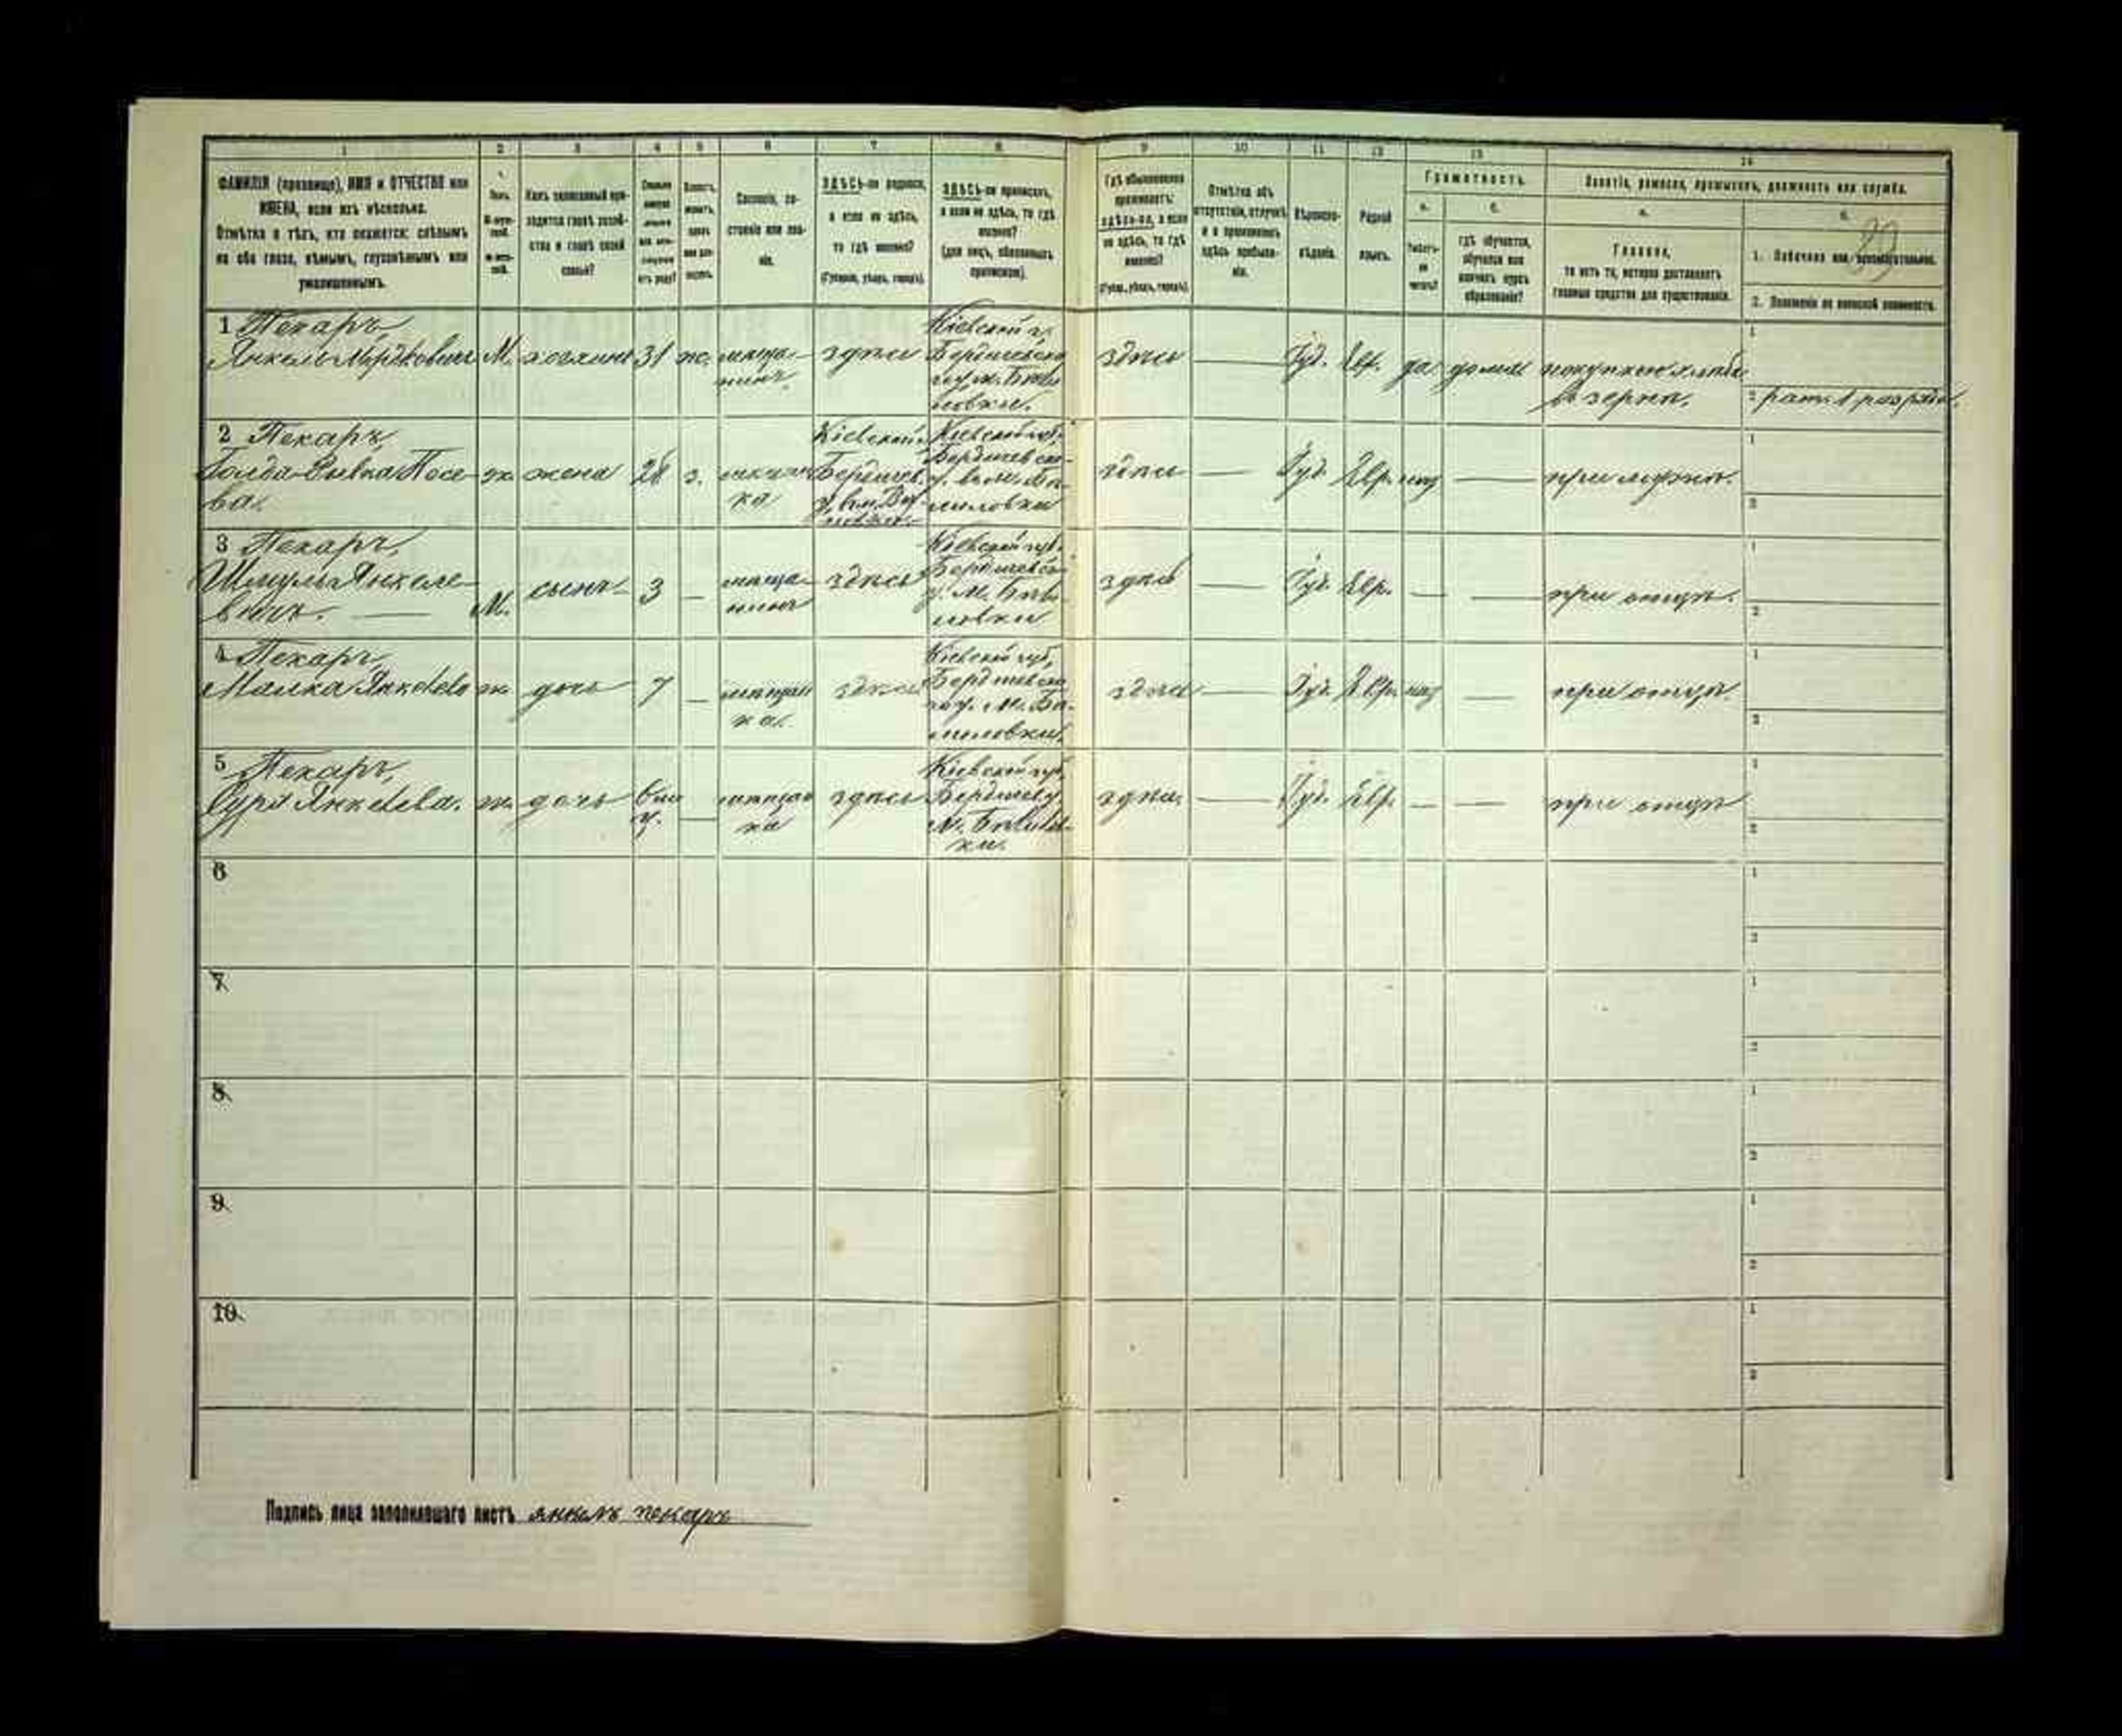 1 2 3 4 5 6 7 8 9 10 11 12 13 14
ФАМИЛІЯ (прозвище), ИМЯ и ОТЧЕСТВО или
ИМЕНА, если ихъ нѣсколько.
Отмѣтка о тѣхъ, кто окажется: слѣпымъ
на оба глаза, нѣмымъ, глухонѣмымъ или
умалишеннымъ.
Полъ.
Какъ записанный при-
ходится главѣ хозяй-
ства и главѣ своей
семьи?
Сословіе, со-
стояніе или зва-
ніе.
ЗДѢСЬ-ли родился,
а если не здѣсь,
то гдѣ именно?
(Губернія, уѣздъ, городъ).
ЗДѢСЬ-ли приписанъ,
а если не здѣсь, то гдѣ
именно?
(для лицъ, обязанныхъ
припискою).
Гдѣ обыкновенно
проживаетъ:
здѣсь-ли, а если
не здѣсь, то гдѣ
именно?
(Губер., уѣздъ, городъ).
Отмѣтка объ
отсутствіи, отлучкѣ
и о временномъ
здѣсь пребыва-
ніи.
Вѣроиспо-
вѣданіе.
Родной
языкъ.
Грамотность.
а.
Умѣетъ-
ли
читать?
б.
гдѣ обучается,
обучался или
кончилъ курсъ
образованія?
Занятіе, ремесло, промыселъ, должность или служба.
а.
Главное,
то есть то, которое доставляетъ
главныя средства для существованія.
б.
89
1. Побочное или вспомогательное.
2. Положеніе по воинской повинности.
1 Пекарь,
Янкель Мордковичъ М. хозяинъ 31 ж. мѣща-
нинъ здѣсь
Кіевской г.
здѣсь — Іуд. Евр. да дома покупкою хлѣба
въ зернѣ.
1
2 рат. 1 разряда.
2 Пекарь,
Голда-Ривка Иосе-
ва. ж. жена 28 з. мѣщан
ка
Кіевской
Бердичев.
Кіевской губ.
здѣсь — Іуд. Евр. — при мужѣ.
1
2
3 Пекарь,
Шмуль Янкеле-
вичъ. — М. сынъ 3 — мѣща-
нинъ здѣсь
Кіевской губ.
здѣсь — Іуд. Евр. — — при отцѣ.
1
2
4 Пекарь,
Малка Янкелева ж. дочь 7 — мѣщан
ка. здѣсь
Кіевской губ.
здѣсь — Іуд. Евр. — при отцѣ.
1
2
5 Пекарь,
Сура Янкелева. ж. дочь — мѣщан
ка здѣсь
Кіевской губ.
здѣсь — Іуд. Евр. — — при отцѣ
1
2
6
1
2
7
1
2
8
1
2
9
1
2
10
1
2
Подпись лица заполнившаго листъ янкель пекарь